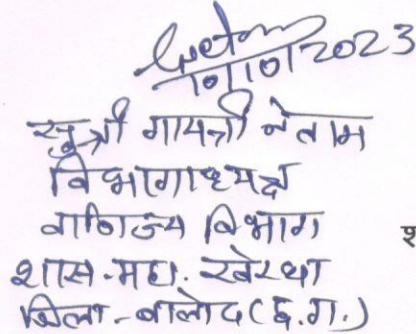 10/10/2023
सुश्री गायत्री नेताम
विभागाध्यक्ष
वाणिज्य विभाग
शास. महा. खेरथा
जिला-बालोद (छ.ग.)